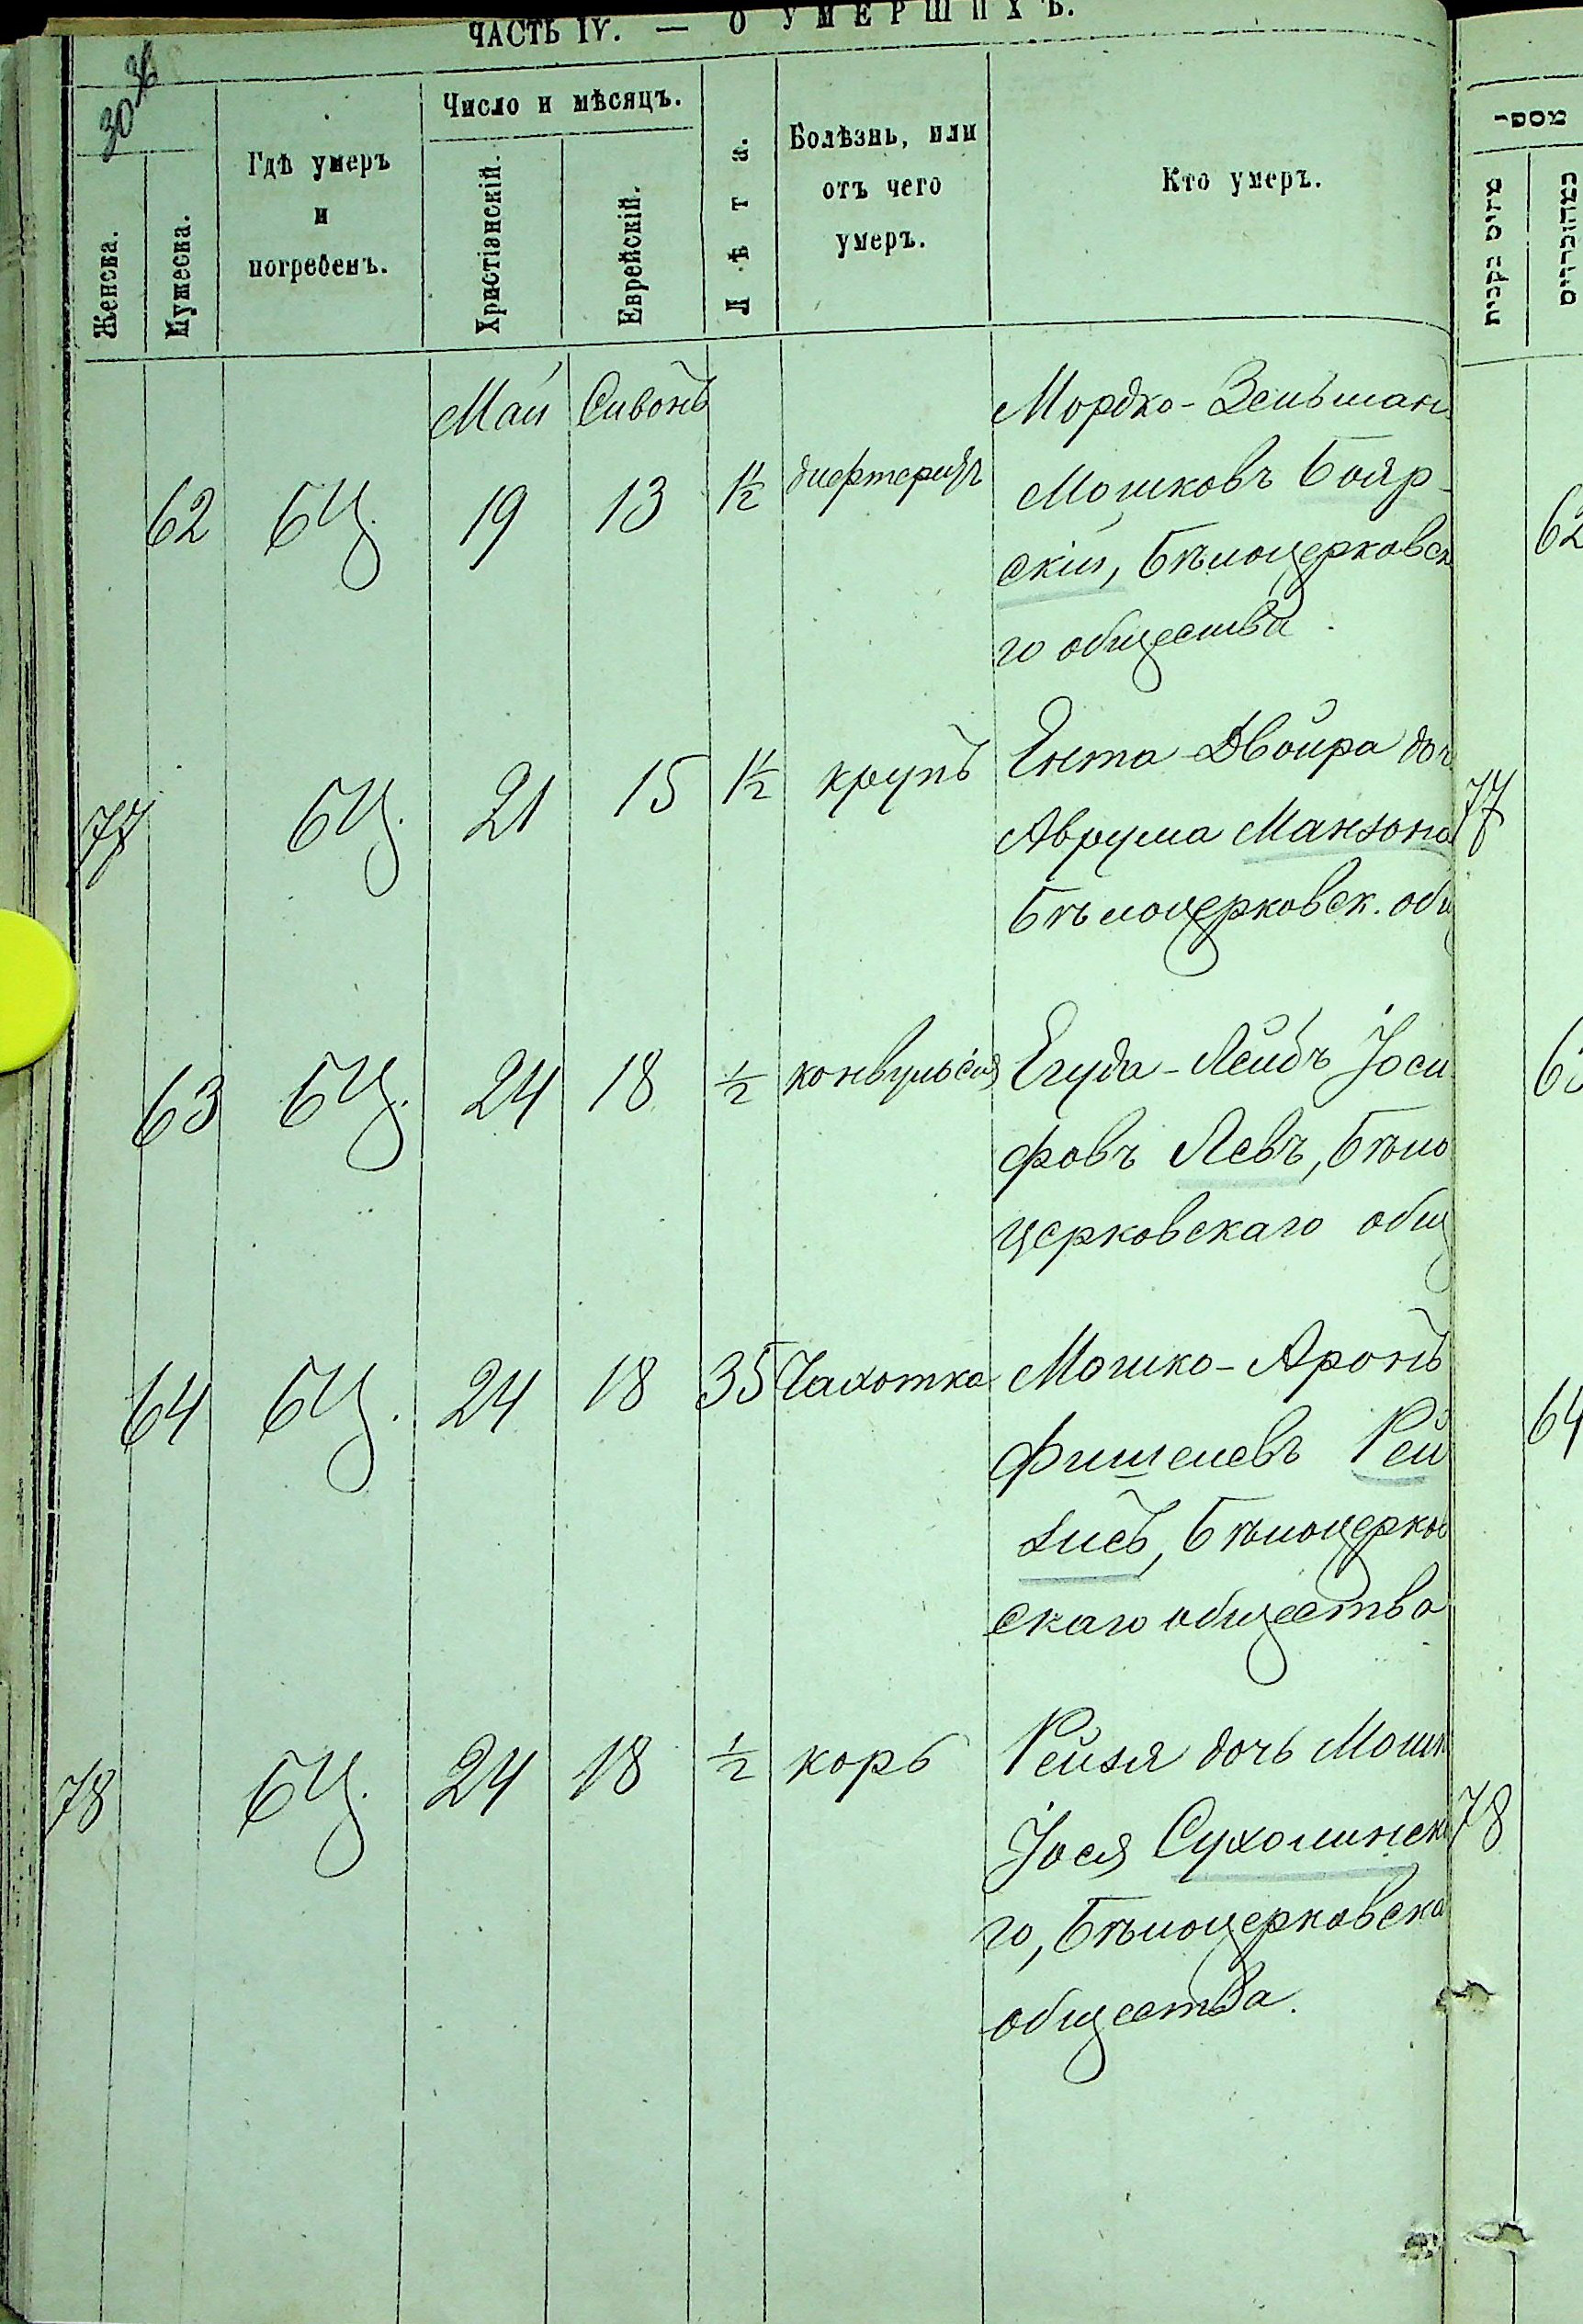 ЧАСТЬ IV. — О УМЕРШИХЪ.
30 36
Женска.
Мужеска.
Гдѣ умеръ
и
погребенъ.
Число и мѣсяцъ.
Христіанскій.
Еврейскій.
Лѣта.
Болѣзнь, или
отъ чего
умеръ.
Кто умеръ.
מספ־
Май Сивонъ
62 БЦ. 19 13 1½ дифтеритъ
Мордко-Зельман
Мошковъ Бояр-
скій, Бѣлоцерковск
го общества.
62
77 БЦ. 21 15 1½ крупъ
Ента-Двойра доч
Аврума Манзона
Бѣлоцерковск. общ
77
63 БЦ. 24 18 ½ конвульсія
Егуда-Лейбъ Іоси
фовъ Левъ, Бѣло
церковскаго общ
64 БЦ. 24 18 35 Чахотка
Мошко-Аронъ
Фишелевъ Рей
зисъ, Бѣлоцерков
скаго общества
64
78 БЦ. 24 18 ½ корь
Рейзя дочь Мошк
Іося Сухолинска
го, Бѣлоцерковска
общества.
78